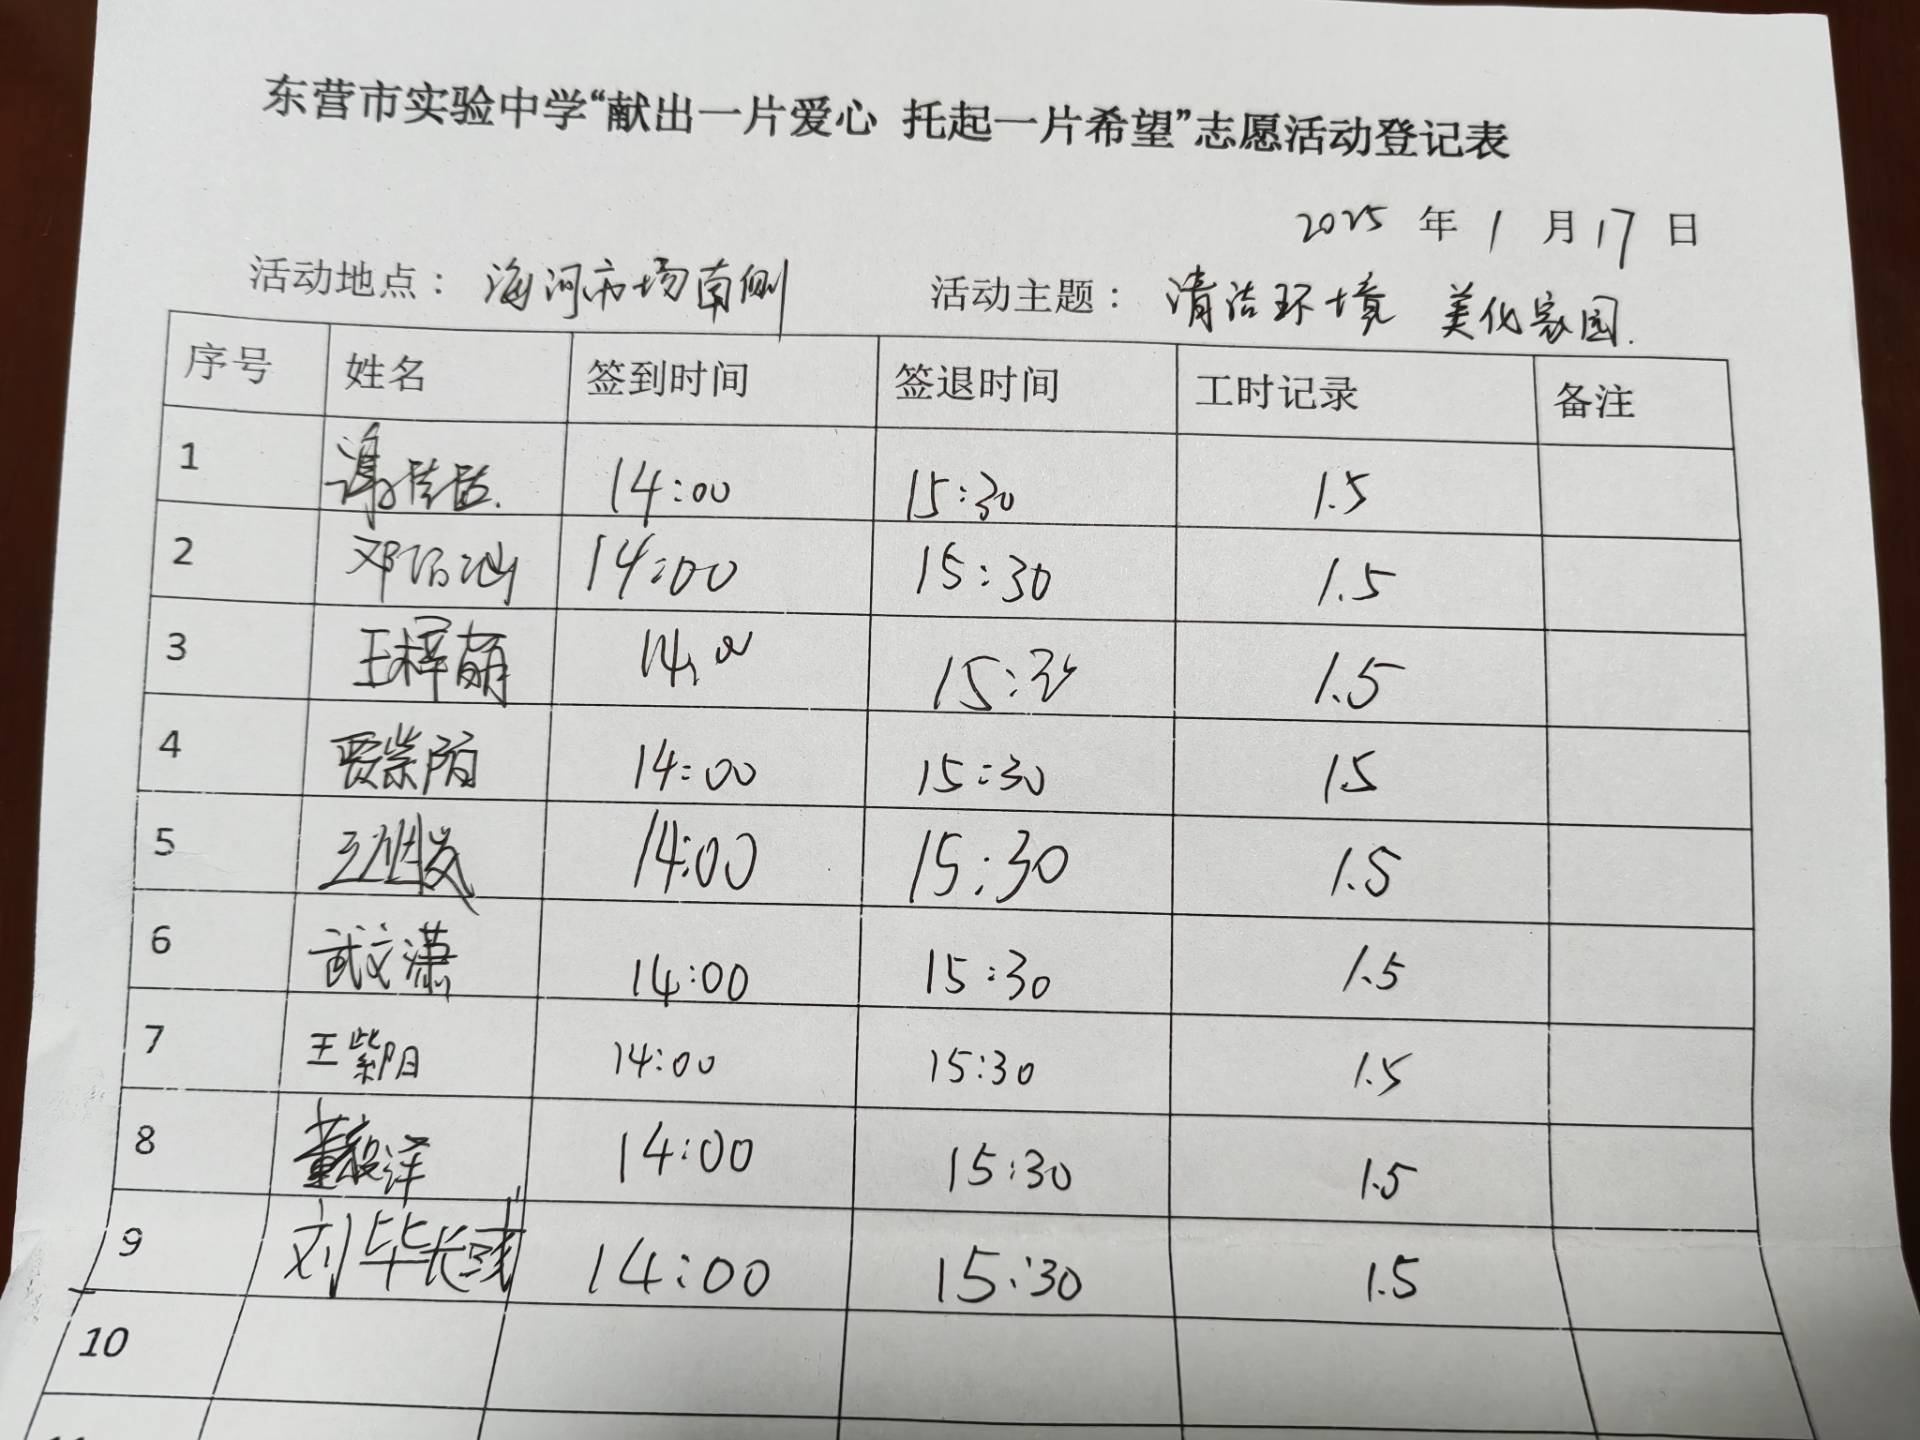 东营市实验中学“献出一片爱心 托起一片希望”志愿活动登记表
2025 年 1 月 17 日
活动地点： 海河市场南侧 活动主题： 清洁环境 美化家园.
序号 姓名 签到时间 签退时间 工时记录 备注
1 谢 14:00 15:30 1.5
2 邓 14:00 15:30 1.5
3 王梓萌 14:00 15:30 1.5
4 贾崇阳 14:00 15:30 1.5
5 14:00 15:30 1.5
6 武文潇 14:00 15:30 1.5
7 王紫阳 14:00 15:30 1.5
8 董毅洋 14:00 15:30 1.5
9 刘毕长彧 14:00 15:30 1.5
10